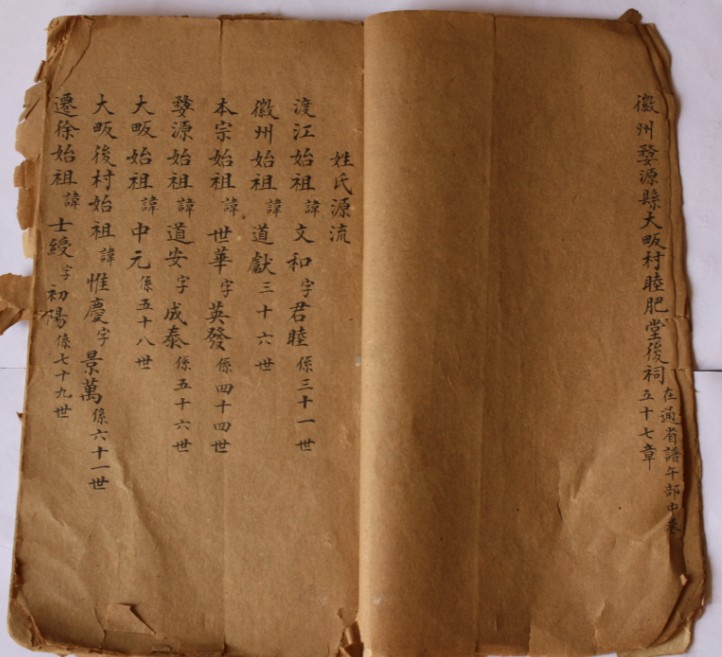 徽州婺源縣大畈村睦肥堂後祠在通省譜午部中卷五十七章
姓氏源流
渡江始祖諱文和字君睦係三十一世
徽州始祖諱道獻三十六世
本宗始祖諱世華字英發係四十四世
婺源始祖諱道安字成泰係五十六世
大畈始祖諱中元係五十八世
大畈後村始祖諱惟慶字景萬係六十一世
遷徐始祖諱士綬字初陽係七十九世